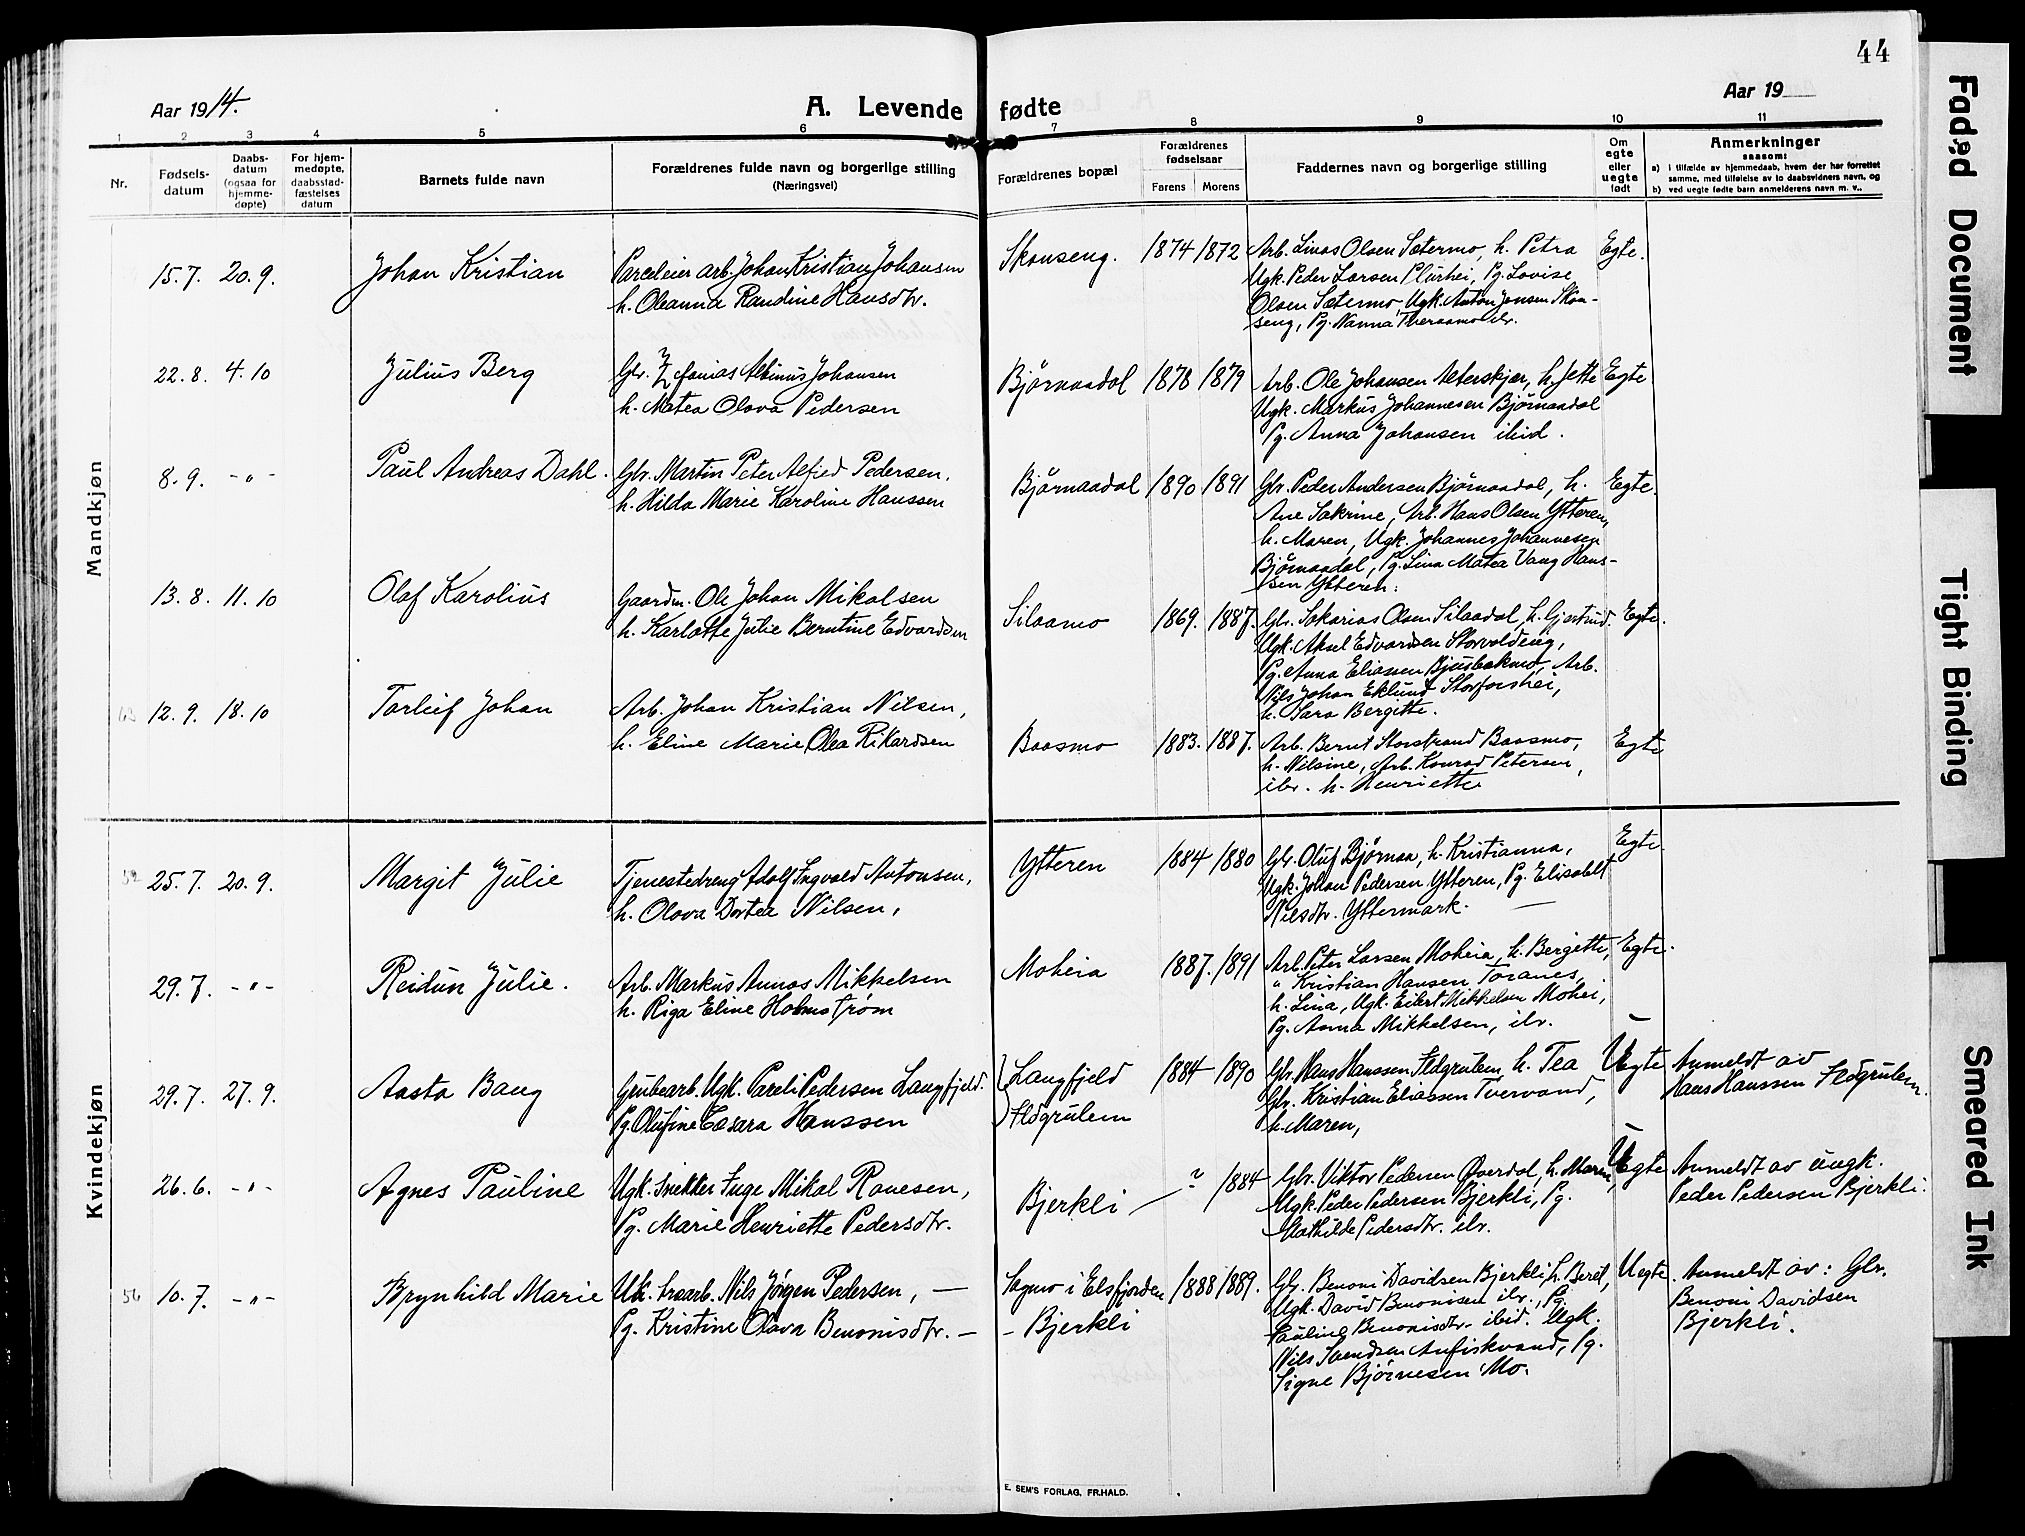 44
Aar 1914.
A. Levende fødte
Aar 19
1 2 3 4 5 6 7 8 9 10 11
Nr.
Fødsels-
datum
Daabs-
datum
(ogsaa for
hjemme-
døpte)
For hjem-
medøpte,
daabsstad-
fæstelses
datum
Barnets fulde navn
Forældrenes fulde navn og borgerlige stilling
(Næringsvei)
Forældrenes bopæl
Forældrenes
fødselsaar
Farens Morens
Faddernes navn og borgerlige stilling
Om
egte
eller
uegte
født
Anmerkninger
saasom:
a) i tilfælde av hjemmedaab, hvem der har forrettet
samme, med tilføielse av to daabsvidners navn, og
b) ved uegte fødte barn anmelderens navn m. v..
Mandkjøn
15.7. 20.9.
Johan Kristian
Parceleier arb. Johan Kristian Johansen
h. Oleanna Randine Hansdtr.
Skonseng. 1874 1872
Arb. Linas Olsen Sætermo, h. Petra
Ugk. Peder Larsen Plurhei, Pg. Lovise
Olsen Sætermo, Ugk. Anton Jensen Skon-
seng, Pg. Nanna
Egte.
22.8. 4.10
Julius Berg
Gbr. Zefanias Albinus Johansen
h. Matea Olava Pedersen
Bjørnaadal 1878 1879
Arb. Ole Johansen Alterskjær, h. Jette
Ugk. Markus Johannesen Bjørnaadal
Pg. Anna Johansen ibid.
Egte
8.9. -"-
Paul Andreas Dahl.
Gbr. Martin Peter Alfred Pedersen,
h. Hilda Marie Karoline Hanssen
Bjørnaadal 1890 1891
Gbr. Peder Andersen Bjørnaadal, h.
Ane Sakrine, Arb. Hans Olsen Ytteren,
h. Maren, Ugk. Johannes Johannesen
Bjørnaadal, Pg. Lina Matea Vang Hans-
sen Ytteren.
Egte.
13.8. 11.10
Olaf Karolius
Gaardm. Ole Johan Mikalsen
h. Karlotte Julie Berntine Edvardsen
Silaamo 1869. 1887.
Gbr. Sakarias Olsen Silaadal, h. Gjertrud.
Ugk. Aksel Edvardsen Storvoldeng,
Pg. Anna Eliassen Bjusbekmo, Arb.
Nils Johan Eklund Storforshei,
h. Sara Bergitte.
Egte.
63 12.9. 18.10
Torleif Johan
Arb. Johan Kristian Nilsen,
h. Eline Marie Olea Rikardsen
Baasmo 1883. 1887.
Arb. Bernt Storstrand Baasmo,
h. Nilsine, Arb. Konrad Petersen,
ibr. h. Henriette
Egte
Kvindekjøn
52 25.7. 20.9.
Margit Julie
Tjenestedreng Adolf Ingvald Antonsen,
h. Olava Dortea Nilsen,
Ytteren 1884 1880
Gbr. Oluf Bjørnaa, h. Kristianna,
Ugk. Johan Pedersen Ytteren, Pg. Elisabet
Nilsdtr. Yttermark.
Egte
29.7. -"-
Reidun Julie.
Arb. Markus Annas Mikkelsen
h. Riga Eline Holmstrøm
Moheia 1887. 1891
Arb. Peter Larsen Moheia, h. Bergitte,
" Kristian Hansen Toranes,
h. Lina, Ugk. Eilert Mikkelsen Mohei,
Pg. Anna Mikkelsen, ibr.
Egte.
29.7. 27.9.
Aasta Bang
Grubearb. Ugk. Pareli Pedersen Langfjeld.
Pg. Olufine Cæsara Hanssen
Langfjeld
Flogrulem
1884 1890
Gbr. Hans Hanssen Flogrulem, h. Tea
Gbr. Kristian Eliassen Tvervand,
h. Maren,
Uegte
Anmeldt av
Hans Hanssen Flogrulem.
26.6. -"-
Agnes Pauline
Ugk. Snekker Inge Mikal Ranesen,
Pg. Marie Henriette Pedersdtr.
Bjerkli ? 1884
Gbr. Viktor Pedersen Øverdal, h. Maren,
Ugk. Peder Pedersen Bjerkli, Pg.
Mathilde Pedersdtr. ibr.
Uegte
Anmeldt av ungk.
Peder Pedersen Bjerkli.
56 10.7. -"-
Brynhild Marie
Uk. træarb. Nils Jørgen Pedersen, —
Pg. Kristine Olava Benonisdtr. —
Sagmo i Elsfjorden
- Bjerkli
1888 1889.
Gbr. Benoni Davidsen Bjerkli h. Beret,
Ugk. David Benonisen ibr., Pg.
Pauline Benonisdtr. ibid. Ugk.
Nils Svendsen Aufiskvand, Pg.
Signe Bjørnesen Mo.
Uegte.
Anmeldt av: Gbr.
Benoni Davidsen
Bjerkli.
E. SEM'S FORLAG, FR.HALD.
Faded Document
Tight Binding
Smeared Ink